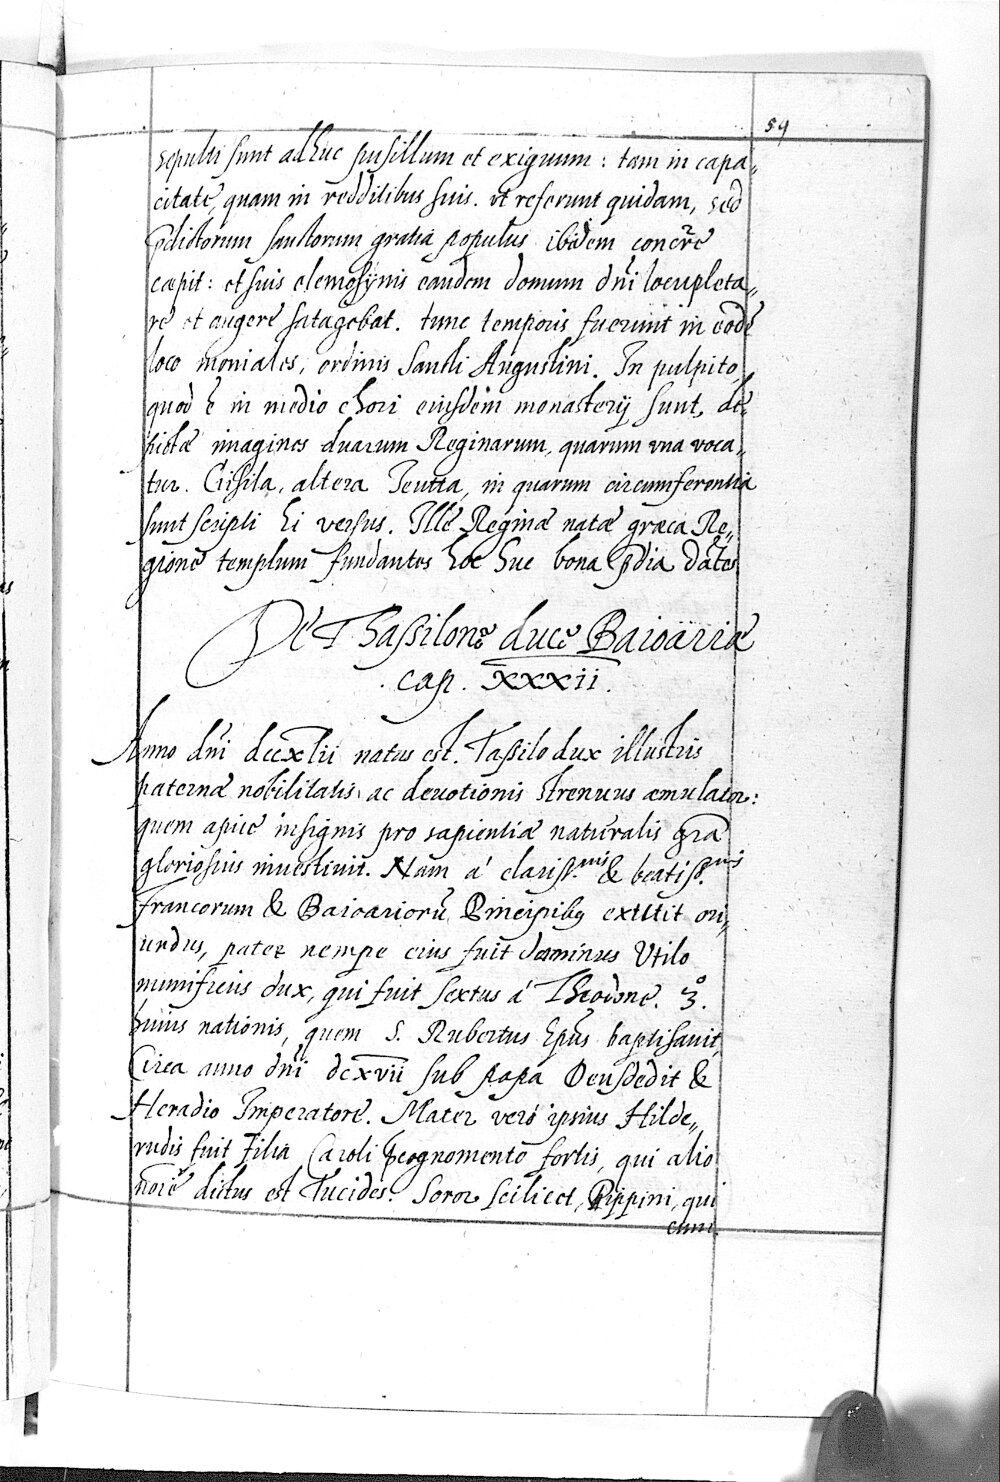 59
sepulti sunt adhuc pusillum et exiguum: tam in capa„
citate, quam in redditibus suis. ut referunt quidam, sed
p̄dictorum sanctorum gratia populus ibidem concrēre
cæpit: et suis elemosÿnis eandem domum dn̄i locupleta„
re et augere satagebat. tunc temporis fuerunt in eodē
loco moniales, ordinis Sancti Augustini. In pulpito,
quod ē in medio chori eiusdem monasterij sunt, de„
pictæ imagines duarum Reginarum, quarum vna voca„
tur. Gisila, altera Teutta, in quarum circumferentia
sunt scripti hi versus. Illē Reginæ natæ græca Re„
gione templum fundantes hoc huc bona p̄dia dātes
De Thassilone duce Baioariæ
cap. XXXII.
Anno dn̄i dccxlii natus est. Tassilo dux illustris
paternæ nobilitatis ac deuotionis strenuus æmulator:
quem apice insignis pro sapientiæ naturalis gr̄a
gloriosius inuestiuit. Nam á clariss.mis & beatiss.mis
francorum & Baioariorū Principibq extitit ori„
undus, pater nempe eius fuit dominus Vtilo
munificus dux, qui fuit sextus á Theodone. 3.º
huius nationis, quem S. Rubertus Ep̄us baptisauit,
Circa anno dn̄i dcxvii sub papa Deusdedit &
Heradio Imperatore. Mater veró ipsius Hilde„
rudis fuit Filia Caroli p̄cognomento fortis, qui alio
noīe dictus est Tucides. Soror scilicet, Pippini, qui
cum